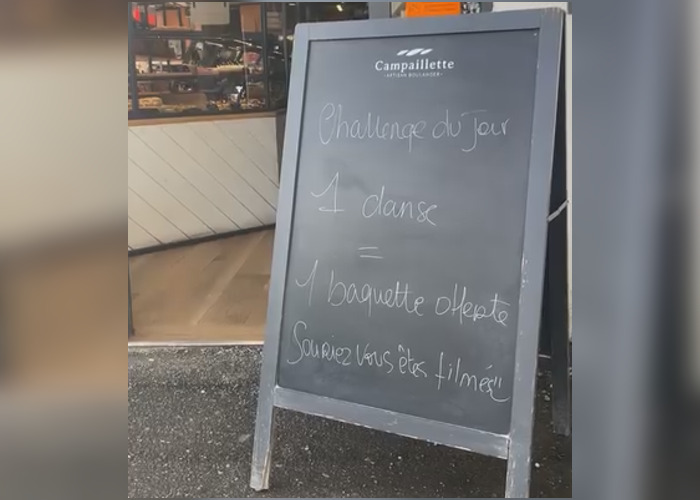 Campaillette
-ARTISAN BOULANGER-
Challenge du Jour
1 danse
=
1 baguette offerte
Souriez vous êtes filmés"